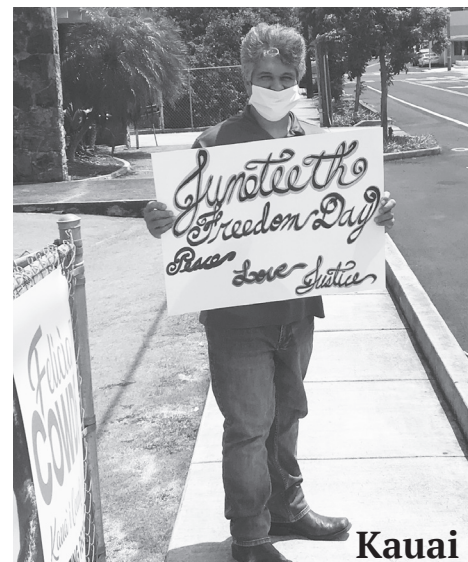 Juneteeth
Freedom Day
Peace
Love
Justice
Felicia
COW
Kauai
Kauai